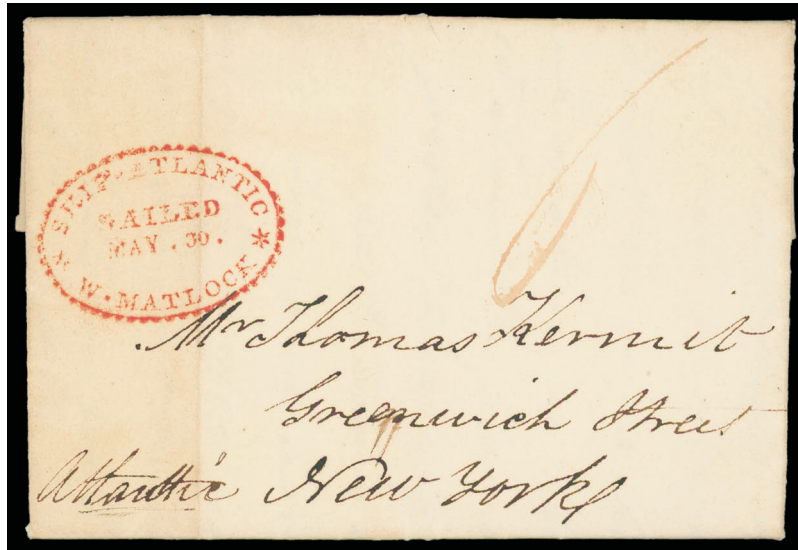 * SHIP-ATLANTIC *
SAILED
MAY . 30 .
W. MATLOCK
6
Mr Thomas Kermit
Greenwich Street
Atlantic New York